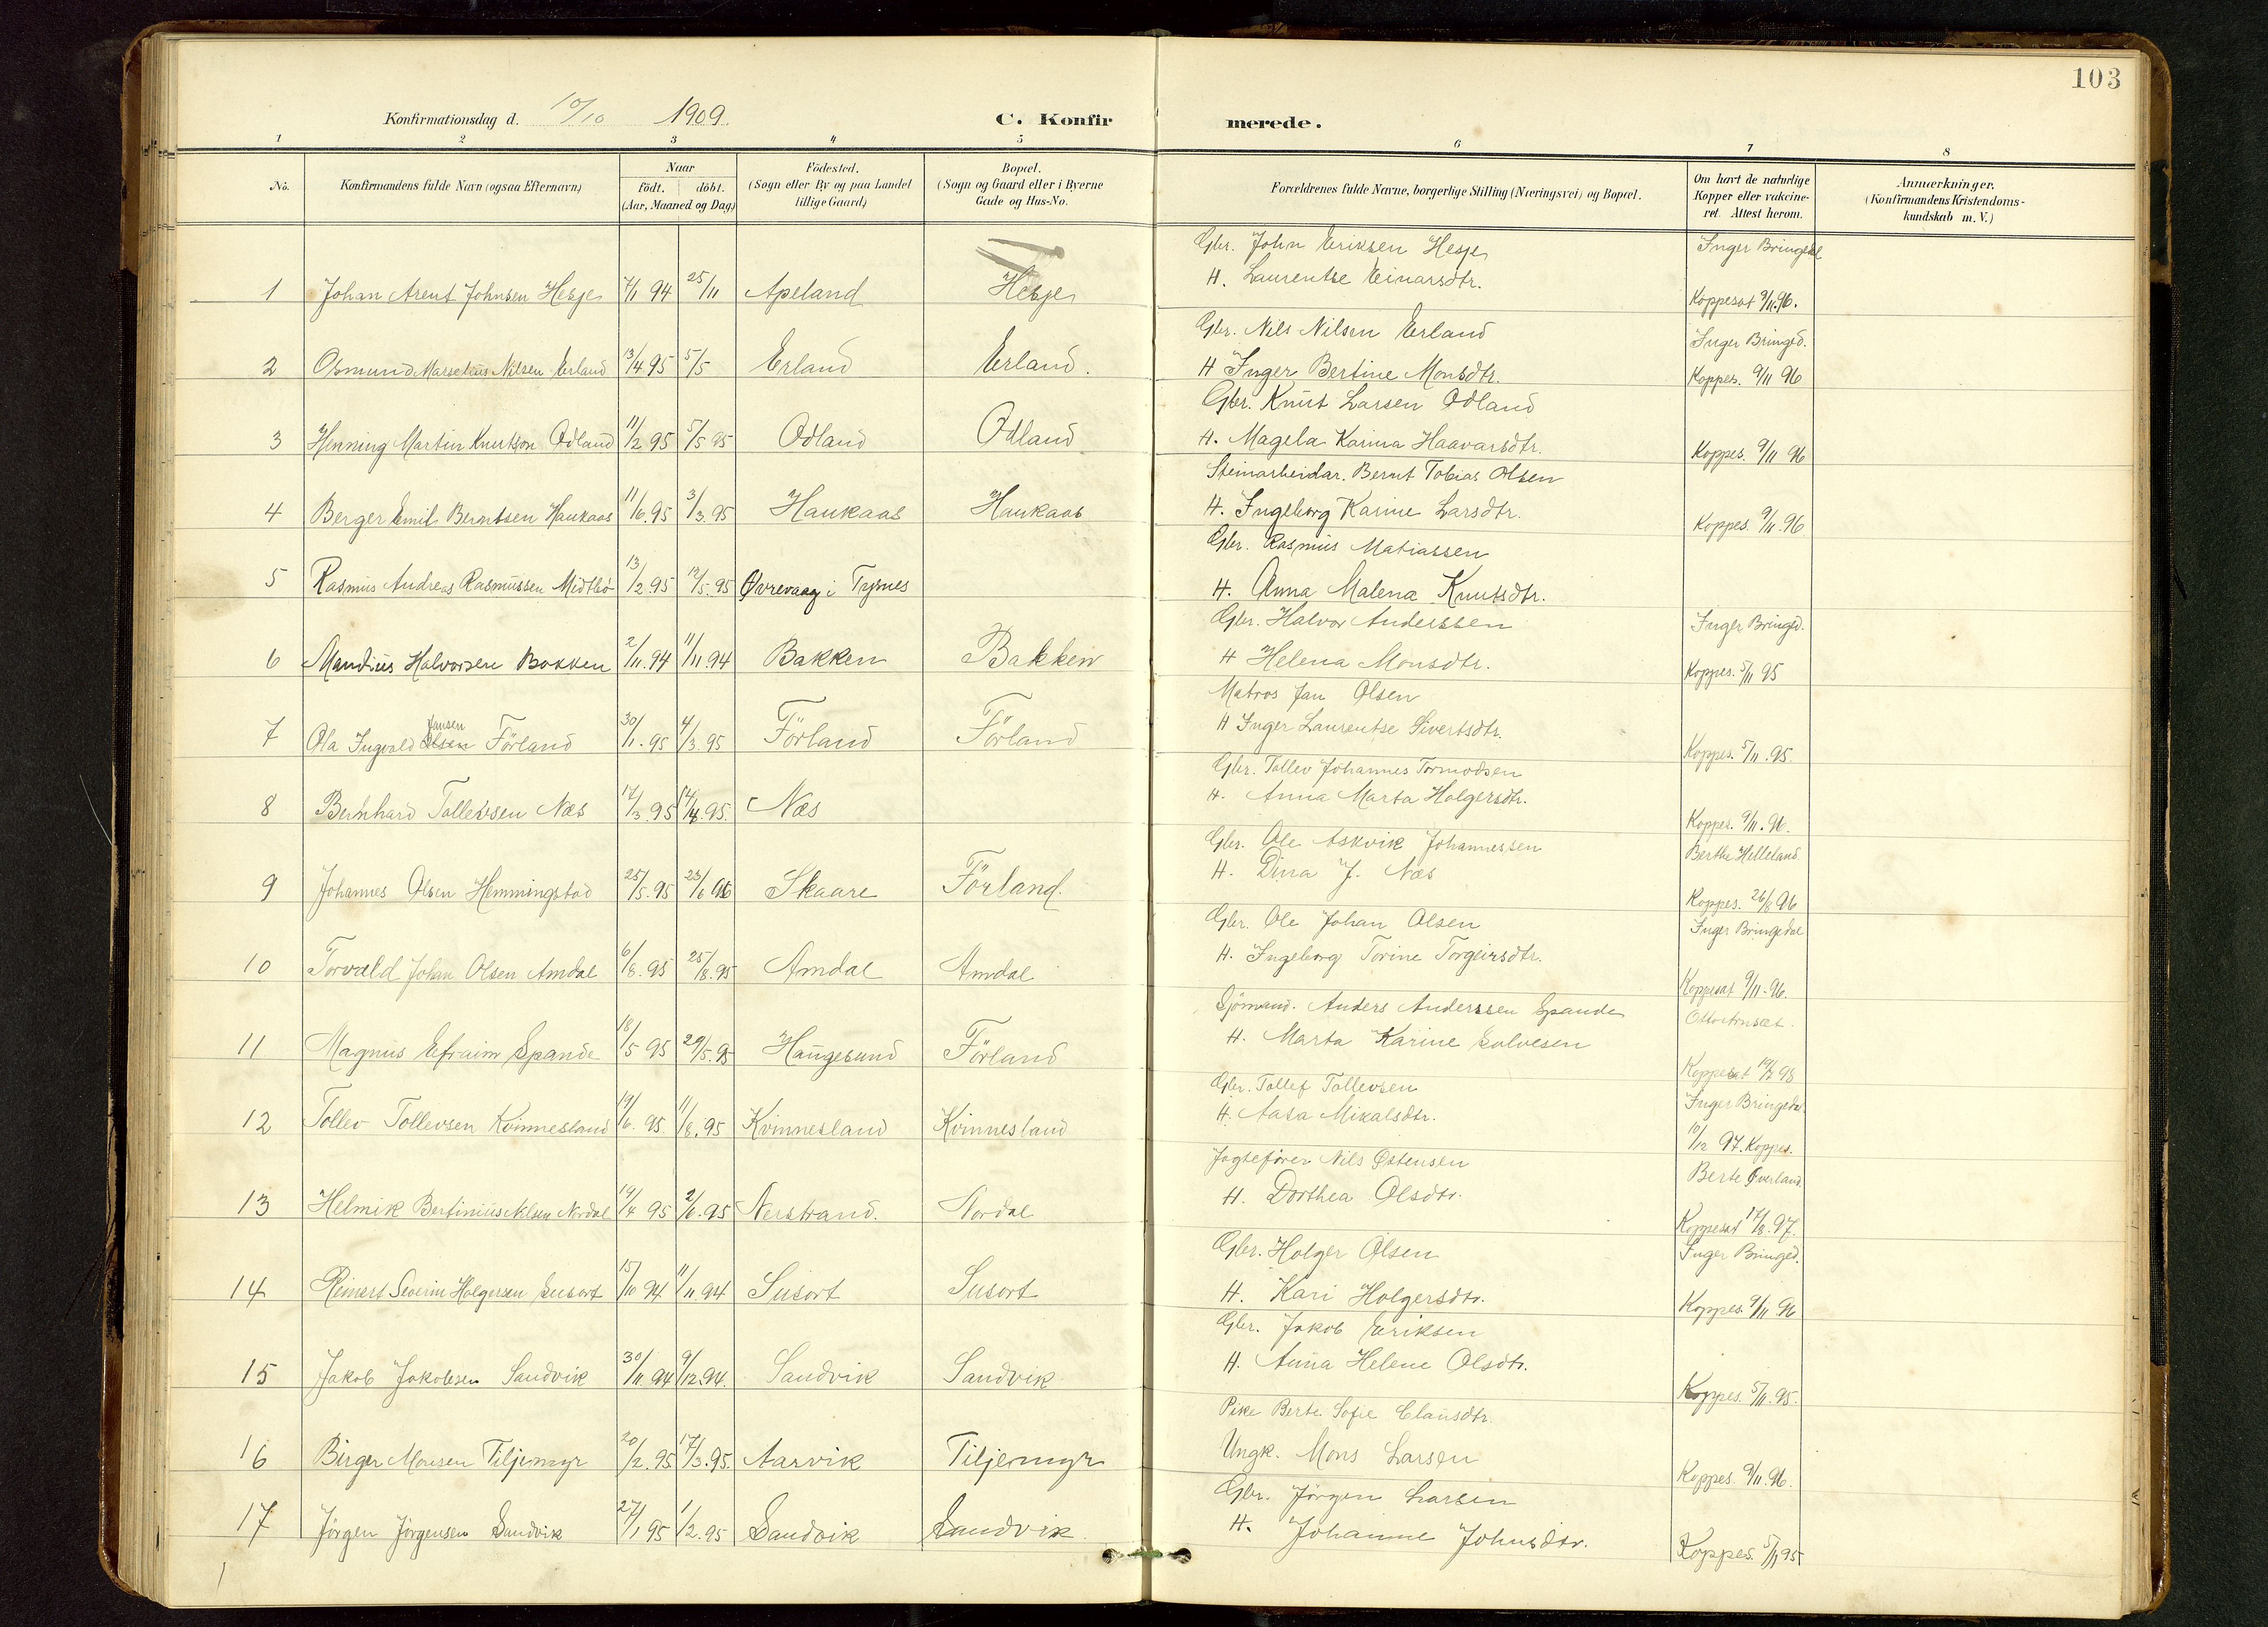 103
Konfirmationsdag d. 10/10 1909. C. Konfirmerede.
1 2 3 4 5 6 7 8
No. Konfirmandens fulde Navn (ogsaa Efternavn) Naar födt. döbt. (Aar, Maaned og Dag) Födested. (Sogn eller By og paa Landet tillige Gaard) Bopæl. (Sogn og Gaard eller i Byerne Gade og Hus-No. Forældrenes fulde Navne, borgerlige Stilling (Næringsvei) og Bopæl. Om havt de naturlige Kopper eller vakcineret. Attest herom. Anmærkninger. (Konfirmandens Kristendomskundskab m. V.)
Gbr. John Eriksen Hesje Inger Bringedal
1 Johan Arent Johnsen Hesje 7/1 94 25/11 Apeland Hesje H. Laurentse Einarsdtr. Koppesat 9/11.96.
Gbr. Nils Nilsen Erland Inger Bringed.
2 Osmund Marselius Nilsen Erland 13/4 95 5/5 Erland Erland. H Inger Bertine Monsdtr. Koppes. 9/11 96
Gbr. Knut Larsen Odland
3 Henning Martin Knutson Odland 11/2 95 5/5 95 Odland Odland H. Magela Karina Haavarsdtr. Koppes. 9/11 96
Steinarbeidar. Bernt Tobias Olsen
4 Berger Emil Berntsen Haukaas 11/6.95 3/3.95 Haukaas Haukaas H. Ingeborg Karine Larsdtr. Koppes. 9/11.96
Gbr. Rasmus Matiassen
5 Rasmus Andreas Rasmussen Midtbö 13/2.95 12/5.95 Øvrevaag i Tysnes H. Anna Malena Knutsdtr.
Gbr. Halvor Anderssen Inger Bringed.
6 Mandius Halvorsen Bakken 2/11.94 11/11.94 Bakken Bakken H Helena Monsdtr. Koppes. 5/11 95
Matros Jan Olsen
7 Ola Ingvald Olsen Jansen Förland 30/1.95 4/3.95 Förland Förland H Inger Laurentse Sivertsdtr. Koppes. 5/11.95.
Gbr. Tollev Johannes Tormodsen
8 Bernhard Tollevsen Næs 17/3.95 14/4.95. Næs H. Anna Marta Holgersdtr. Koppes. 9/11.96.
Gbr. Ole Askvik Johannessen Berthe Helleland.
9 Johannes Olsen Hemmingstad 25/5.95 23/6 96 Skaare Förland. H. Dina J. Næs Koppes. 26/8 96
Gbr. Ole Johan Olsen Inger Bringedal
10 Torvald Johan Olsen Amdal 6/8.95 25/8.95 Amdal Amdal H. Ingeborg Torine Torgeirsdtr. Koppesat 9/11-96.
Sjömand. Anders Anderssen Spande
11 Magnus Efraim Spande 18/5 95 29/5.95 Haugesund Förland H. Marta Karine Solvesen Koppesat
Gbr. Tollef Tollevsen Inger Bringedal.
12 Tollev Tollevsen Kvinnesland 19/6.95 11/8.95 Kvinnesland Kvinnesland H. Aasa Mikalsdtr. 10/12 97. Koppes.
Jagtefører Nils Østensen Berte Øverland.
13 Helmik Bertinius Nilsen Nordal 19/4 95 2/6.95 Nerstrand. Nordal H. Dorthea Olsdtr. Koppesat 17/8.97.
Gbr. Holger Olsen Inger Bringed.
14 Reinert Severin Holgersen Susort 15/10 94 11/11.94 Susort Susort H. Kari Holgersdtr. Koppes. 9/11 96
Gbr. Jakob Eriksen
15 Jakob Jakobsen Sandvik 30/11.94 9/12.94. Sandvik Sandvik H. Anna Helene Olsdtr. Koppes. 5/11.95.
Pike Berte Sofie Clausdtr.
16 Birger Monsen Tiljemyr 20/2.95 17/3.95. Aarvik Tiljemyr Ungk. Mons Larsen Koppes. 9/11.96.
Gbr. Jörgen Larsen
17 Jörgen Jörgensen Sandvik 27/1 95 1/2.95 Sandvik Sandvik. H. Johanne Johnsdtr. Koppes. 5/11 95